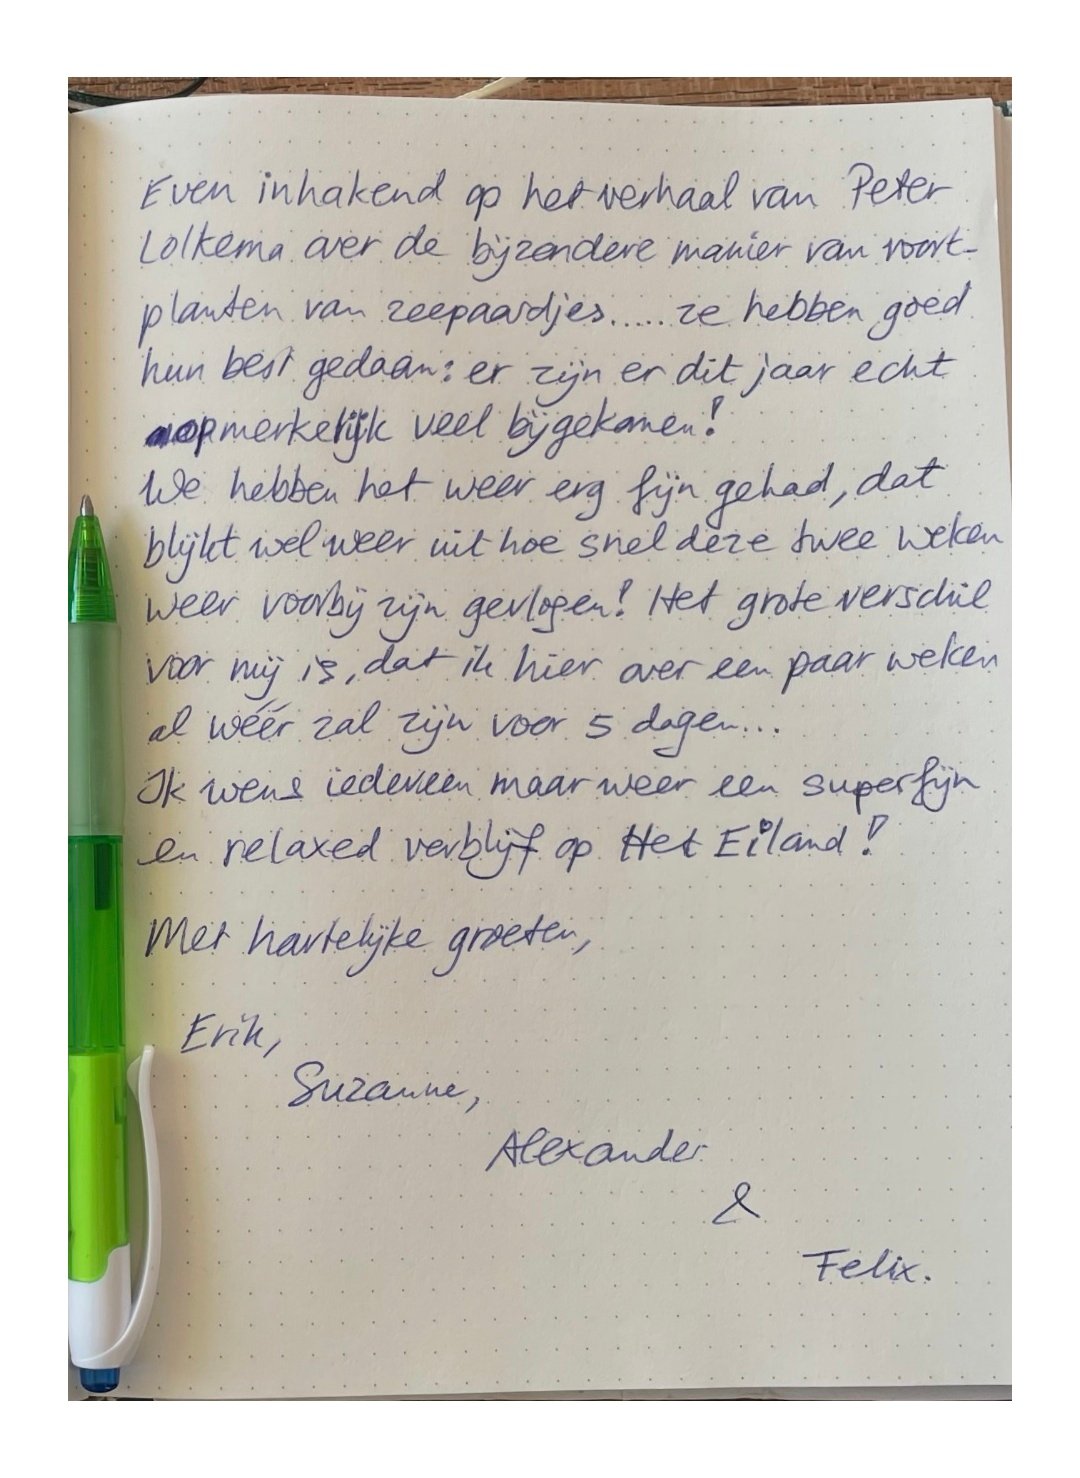 Even inhakend op het verhaal van Peter
Lolkema over de bijzondere manier van voort-
planten van zeepaardjes..... ze hebben goed
hun best gedaan: er zijn er dit jaar echt
opmerkelijk veel bijgekomen!
We hebben het weer erg fijn gehad, dat
blijkt wel weer uit hoe snel deze twee weken
weer voorbij zijn gevlogen! Het grote verschil
voor mij is, dat ik hier over een paar weken
al wéér zal zijn voor 5 dagen...
Ik wens iedereen maar weer een superfijn
en relaxed verblijf op Het Eiland!
Met hartelijke groeten,
Erik,
Suzanne,
Alexander
&
Felix.